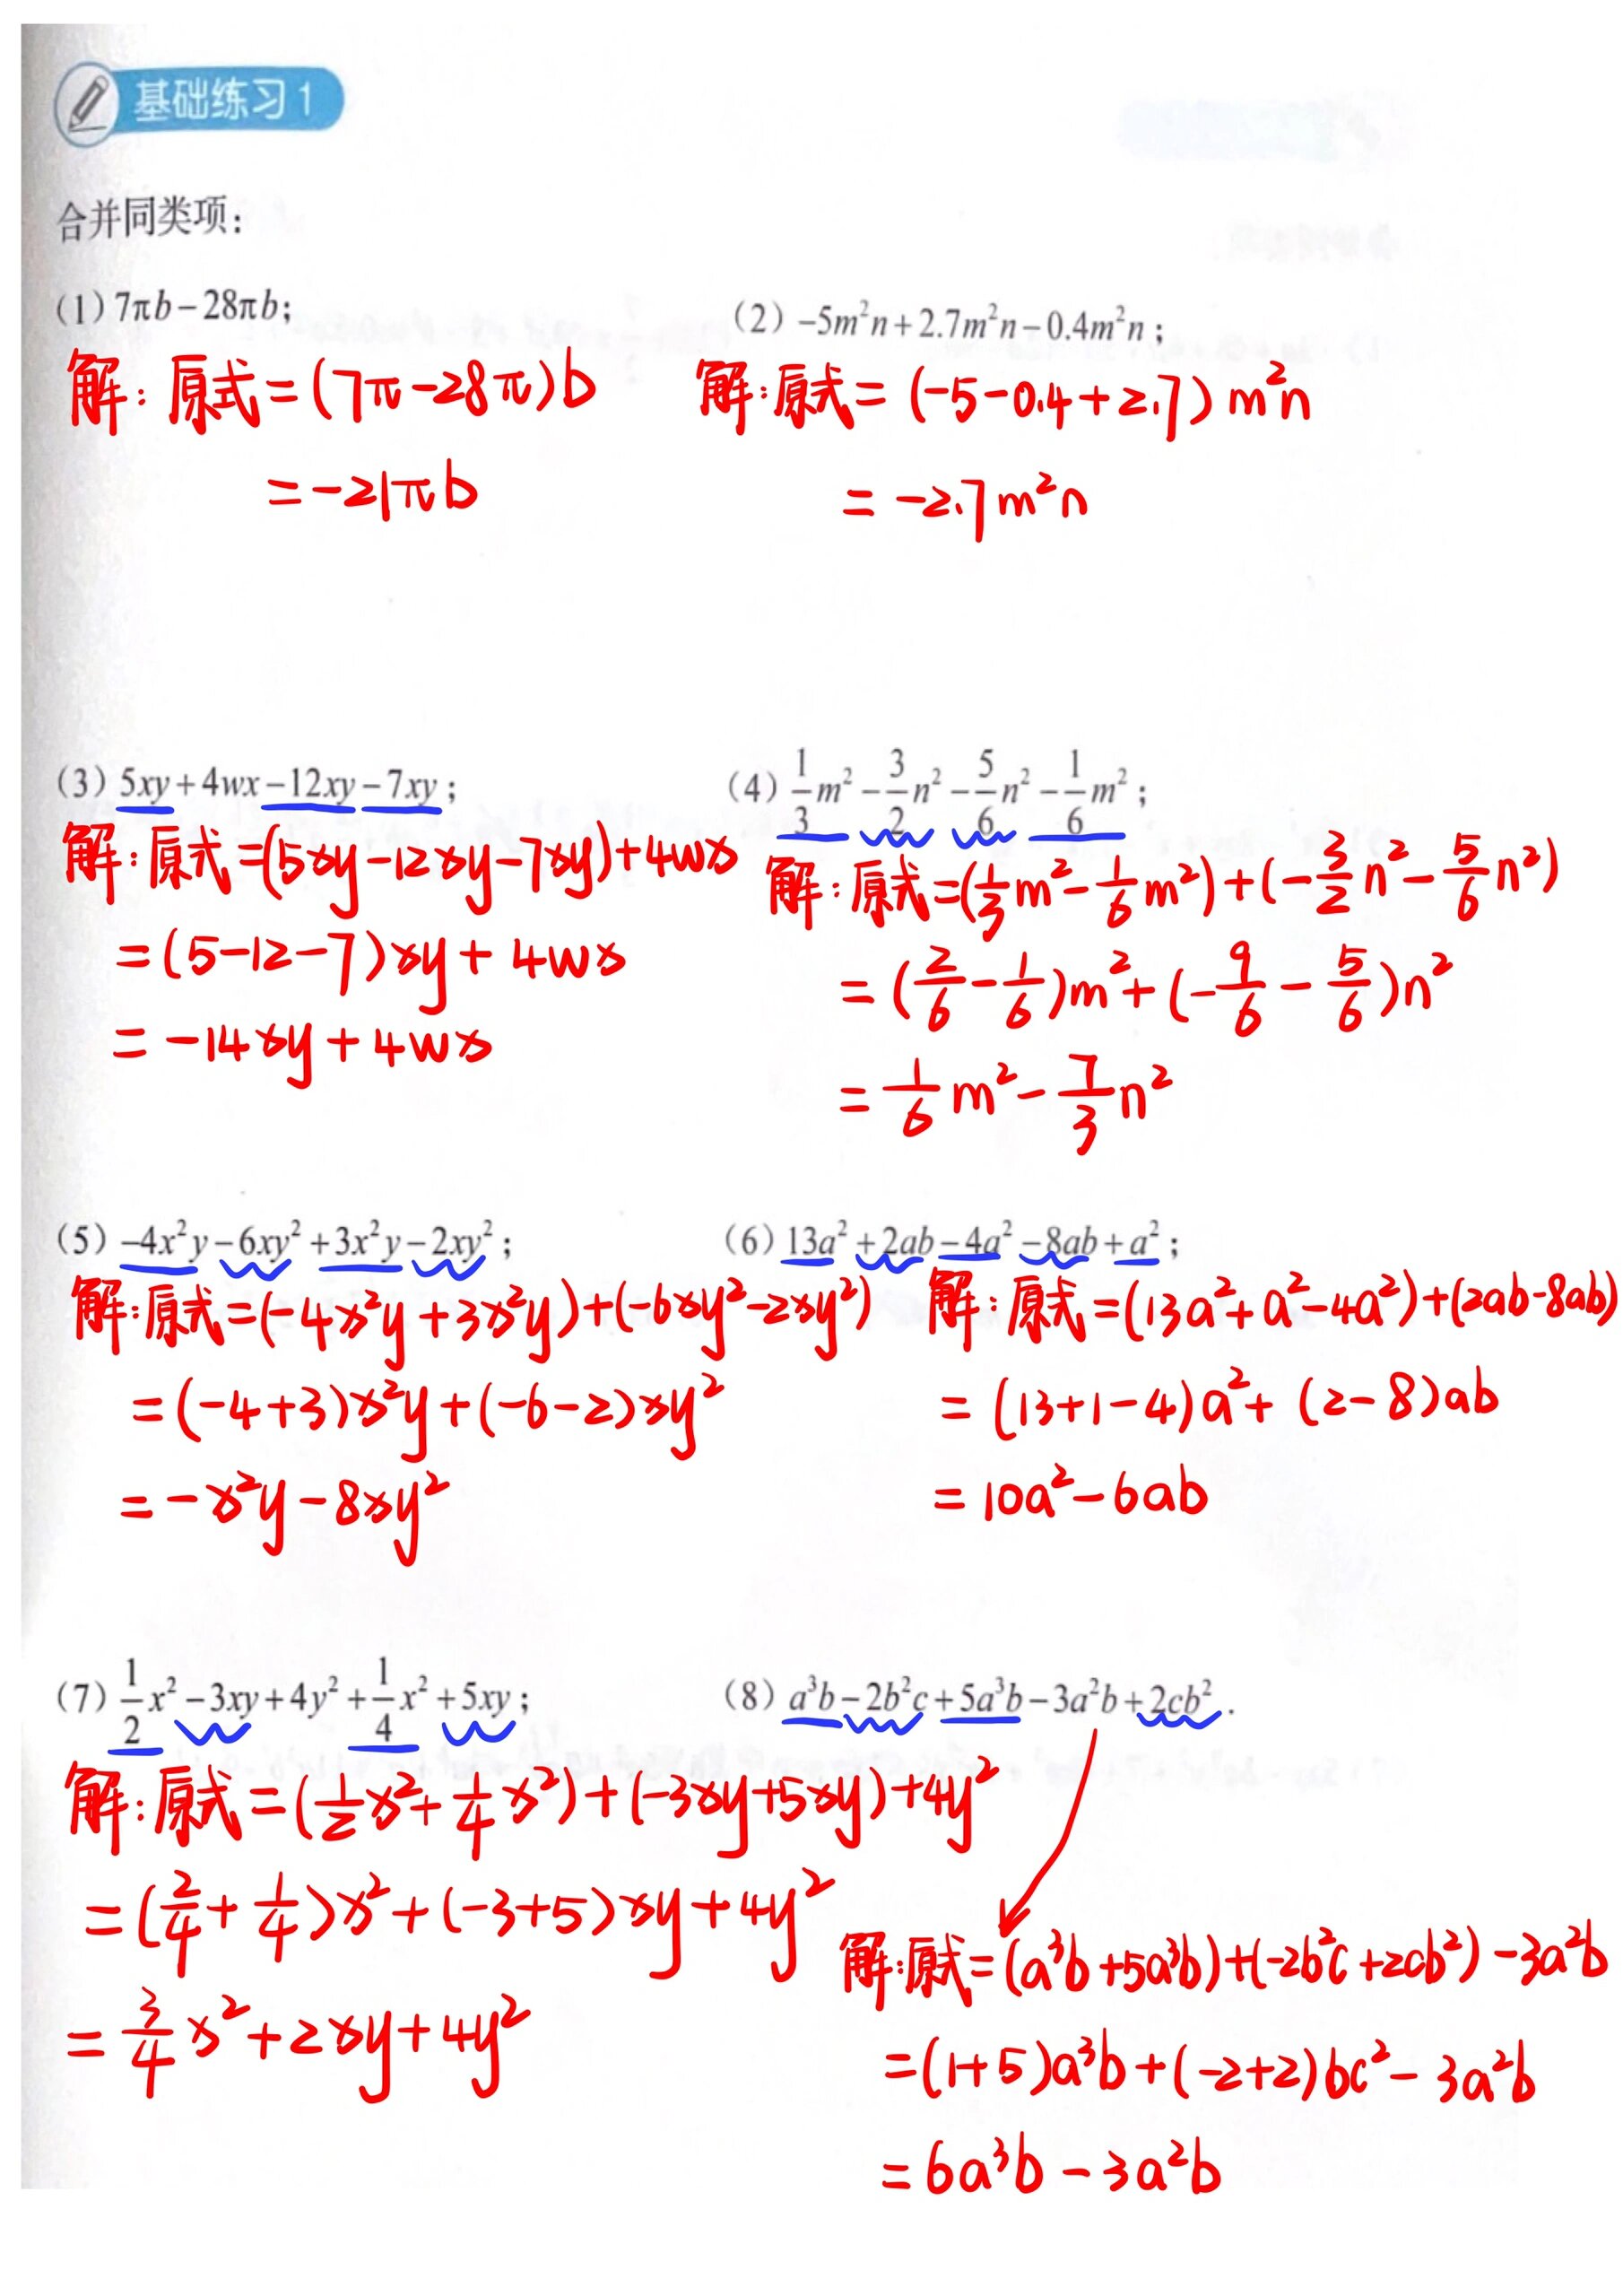 基础练习1
合并同类项：
(1) 7πb－28πb；
解：原式＝(7π－28π)b
＝－21πb
(2) －5m²n＋2.7m²n－0.4m²n；
解：原式＝(－5－0.4＋2.7)m²n
＝－2.7m²n
(3) 5xy＋4wx－12xy－7xy；
解：原式＝(5xy－12xy－7xy)＋4wx
＝(5－12－7)xy＋4wx
＝－14xy＋4wx
(4) 1/3 m²－3/2 n²－5/6 n²－1/6 m²；
解：原式＝(1/3 m²－1/6 m²)＋(－3/2 n²－5/6 n²)
＝(2/6－1/6)m²＋(－9/6－5/6)n²
＝1/6 m²－7/3 n²
(5) －4x²y－6xy²＋3x²y－2xy²；
解：原式＝(－4x²y＋3x²y)＋(－6xy²－2xy²)
＝(－4＋3)x²y＋(－6－2)xy²
＝－x²y－8xy²
(6) 13a²＋2ab－4a²－8ab＋a²；
解：原式＝(13a²＋a²－4a²)＋(2ab－8ab)
＝(13＋1－4)a²＋(2－8)ab
＝10a²－6ab
(7) 1/2 x²－3xy＋4y²＋1/4 x²＋5xy；
解：原式＝(1/2 x²＋1/4 x²)＋(－3xy＋5xy)＋4y²
＝(2/4＋1/4)x²＋(－3＋5)xy＋4y²
＝3/4 x²＋2xy＋4y²
(8) a³b－2b²c＋5a³b－3a²b＋2cb².
解：原式＝(a³b＋5a³b)＋(－2b²c＋2cb²)－3a²b
＝(1＋5)a³b＋(－2＋2)bc²－3a²b
＝6a³b－3a²b